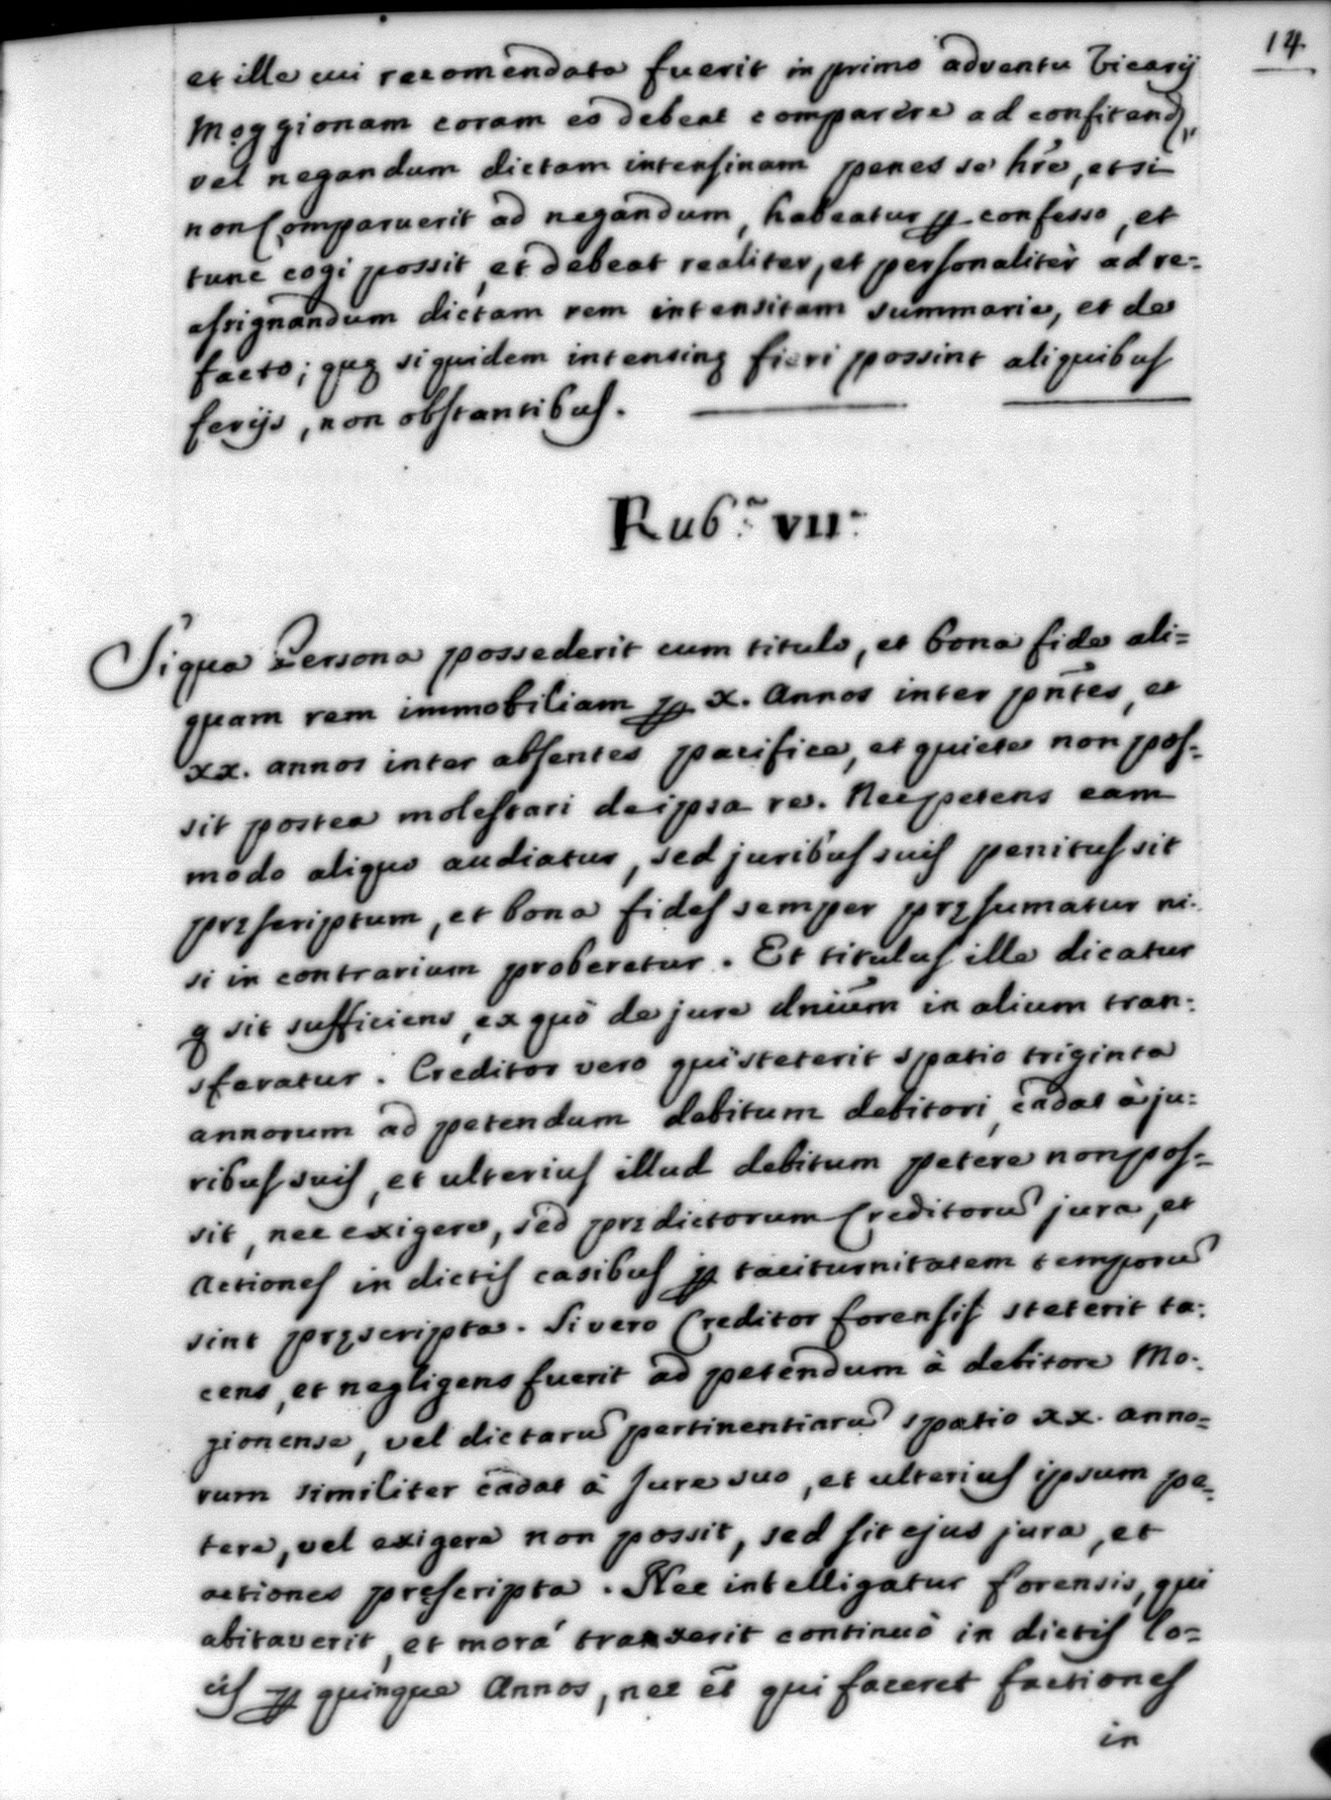 14
et ille cui recomendata fuerit in primo adventu Vicarij
Moggionam coram eo debeat comparère ad confitend,,
vel negandum dictam intensinam penes se hr̃e, et si
non Comparuerit ad negandum, habeatur ꝓ confesso, et
tunc cogi possit, et debeat realiter, et personalitèr ad re=
assignandum dictam rem intensitam summarie, et de
facto; quę siquidem intensinę fieri possint aliquibus
ferijs, non obstantibus.
Rub.ã VII.a
Siqua Persona possederit cum titulo, et bona fide ali=
quam rem immobiliam ꝓ x. Annos inter pñtes, et
xx. annos inter absentes pacifice, et quiete non pos=
sit postea molestari de ipsa re. Nec petens eam
modo aliquo audiatur, sed juribus suis penitus sit
pręscriptum, et bona fides semper pręsumatur ni=
si in contrarium proberetur. Et titulus ille dicatur
q̃ sit sufficiens, ex quò de jure dniũm in alium tran=
sferatur. Creditor vero qui steterit spatio triginta
annorum ad petendum debitum debitori, cadat à ju=
ribus suis, et ulterius illud debitum petere non pos=
sit, nec exigere, sed prędictorum Creditorũ jura, et
Actiones in dictis casibus ꝓ taciturnitatem temporũ
sint pręscripta. Si vero Creditor forensis steterit ta=
cens, et negligens fuerit ad petendum à debitore Mo=
gionense, vel dictarũ pertinentiarũ spatio xx. anno=
rum similiter cadat à Jure suo, et ulterius ipsum pe=
tere, vel exigere non possit, sed sit ejus jura, et
actiones pręscripta. Nec intelligatur forensis, qui
abitaverit, et morá tranxerit continuò in dictis lo=
cis ꝓ quinque Annos, nec et̃ qui faceret factiones
in